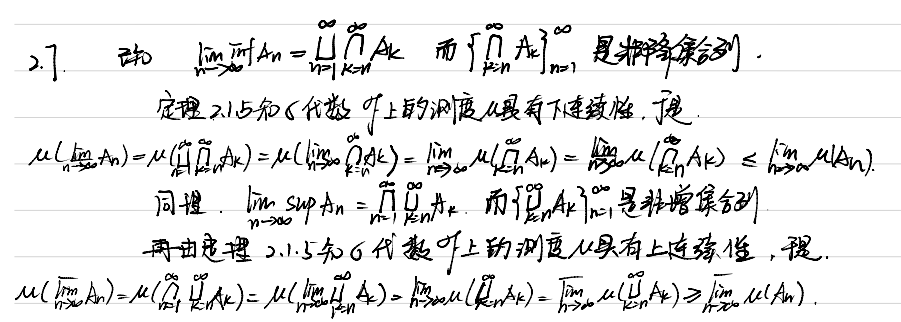 2.7. 已知 $\liminf_{n\to\infty} A_n = \bigcup_{n=1}^{\infty}\bigcap_{k=n}^{\infty} A_k$ 而 $\{\bigcap_{k=n}^{\infty} A_k\}_{n=1}^{\infty}$ 是非降集合列.
定理2.1.5知σ代数 $\mathcal{F}$ 上的测度μ具有下连续性,于是.
$\mu(\varliminf_{n\to\infty} A_n)=\mu(\bigcup_{n=1}^{\infty}\bigcap_{k=n}^{\infty} A_k)=\mu(\lim_{n\to\infty}\bigcap_{k=n}^{\infty} A_k)=\lim_{n\to\infty}\mu(\bigcap_{k=n}^{\infty} A_k)=\varliminf_{n\to\infty}\mu(\bigcap_{k=n}^{\infty} A_k)\le\varliminf_{n\to\infty}\mu(A_n).$
同理. $\limsup_{n\to\infty} A_n=\bigcap_{n=1}^{\infty}\bigcup_{k=n}^{\infty} A_k$. 而 $\{\bigcup_{k=n}^{\infty} A_k\}_{n=1}^{\infty}$ 是非增集合列
再由定理2.1.5知σ代数 $\mathcal{F}$ 上的测度μ具有上连续性,于是.
$\mu(\varlimsup_{n\to\infty} A_n)=\mu(\bigcap_{n=1}^{\infty}\bigcup_{k=n}^{\infty} A_k)=\mu(\lim_{n\to\infty}\bigcup_{k=n}^{\infty} A_k)=\lim_{n\to\infty}\mu(\bigcup_{k=n}^{\infty} A_k)=\varlimsup_{n\to\infty}\mu(\bigcup_{k=n}^{\infty} A_k)\ge\varlimsup_{n\to\infty}\mu(A_n).$